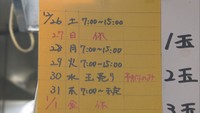 12/26 土 7:00〜15:00
27 日 休
28 月 7:00〜15:00
29 火 7:00〜15:00
30 水 玉売り
31 木 7:00〜
1/1 金 休
1玉
2玉
3玉